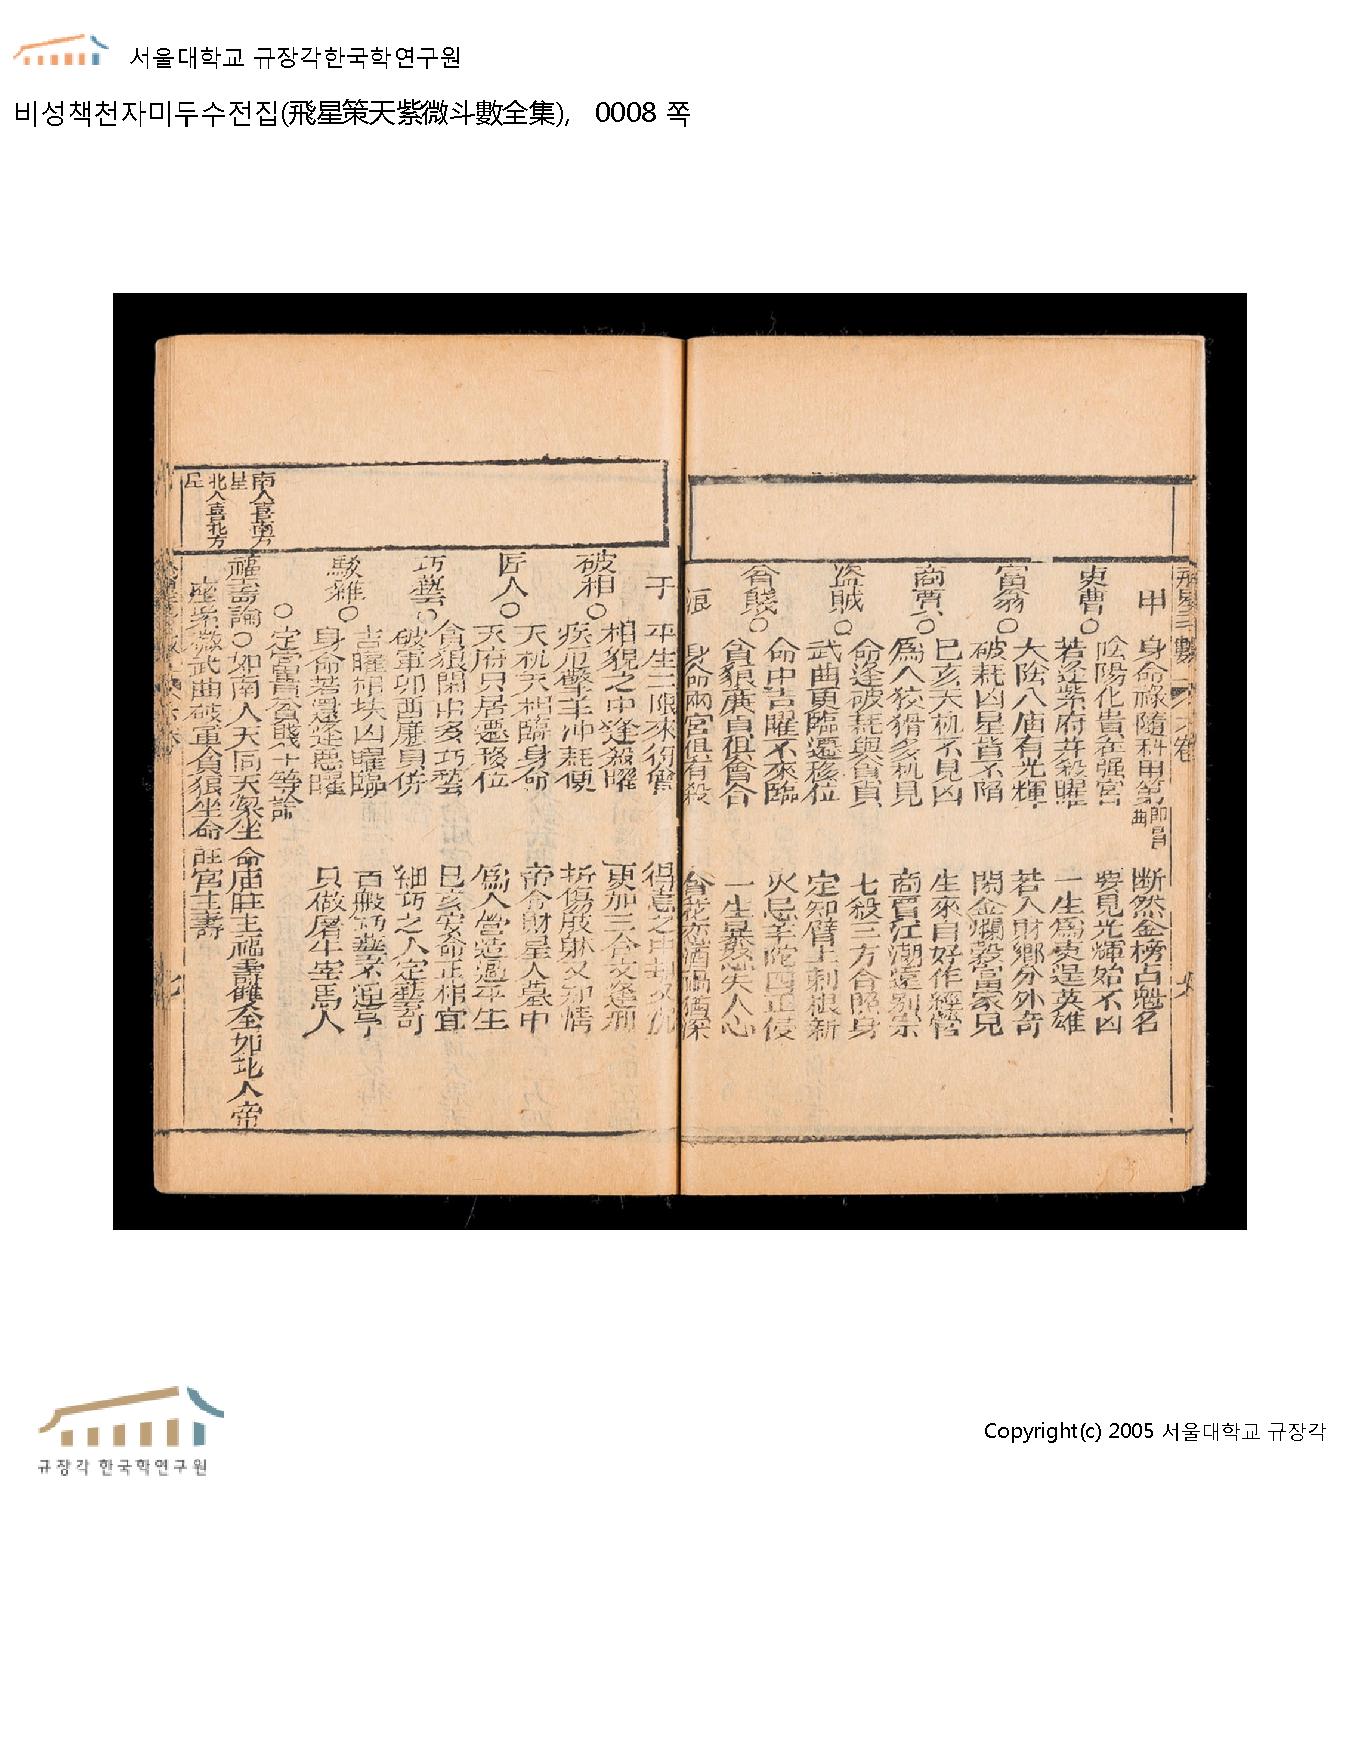 서울대학교 규장각한국학연구원
비성책천자미두수전집(飛星策天紫微斗數全集), 0008 쪽
甲 身命祿隨科甲第 即昌曲 断然金榜占魁名
陰陽化貴在强宮 要見光輝始不凶
吏曹○ 若逢紫府幷殺曜 一生爲吏逞英雄
大陰入庙有光輝 若入財鄉分外奇
富翁○ 破耗凶星皆不陷 閑金爛穀富家兒
巳亥天机不見凶 生來自好作經營
商賈○ 爲人狡猾多机見 商賈江湖遠别宗
命逢破耗與貪貞 七殺三方合照身
盗賊○ 武曲更臨遷移位 定知臂上刺根新
命中吉曜不來臨 火忌羊陀四正侵
貧賤○ 貪狼廉貞俱會合 一生暴怒失人心
浪 身命兩宮俱有殺 貪花恋酒禍猶深
子 平生二限來 得意之中
破相○ 相貌之中逢殺曜 更加三合又逢刑
疾厄擎羊冲耗便 折傷肢躰又知情
匠人○ 天机天相臨身命 帝令財星入墓中
天府只居遷移位 爲人營造過平生
巧藝○ 貪狼閑中多巧藝 巳亥安命正相宜
破軍卯酉廉貞併 細巧之人定藝奇
駁雜○ 吉曜相扶凶曜臨 百般巧藝不通亨
身命若還逢惡曜 只做屠牛宰馬人
○定富貴貧賤十等論
南人喜南方星
北人喜北方星
福壽論○如南人天同天梁坐命庙旺主福壽雙全如北人帝
座紫微武曲破軍貪狼坐命旺宮主壽
규장각 한국학연구원
Copyright(c) 2005 서울대학교 규장각